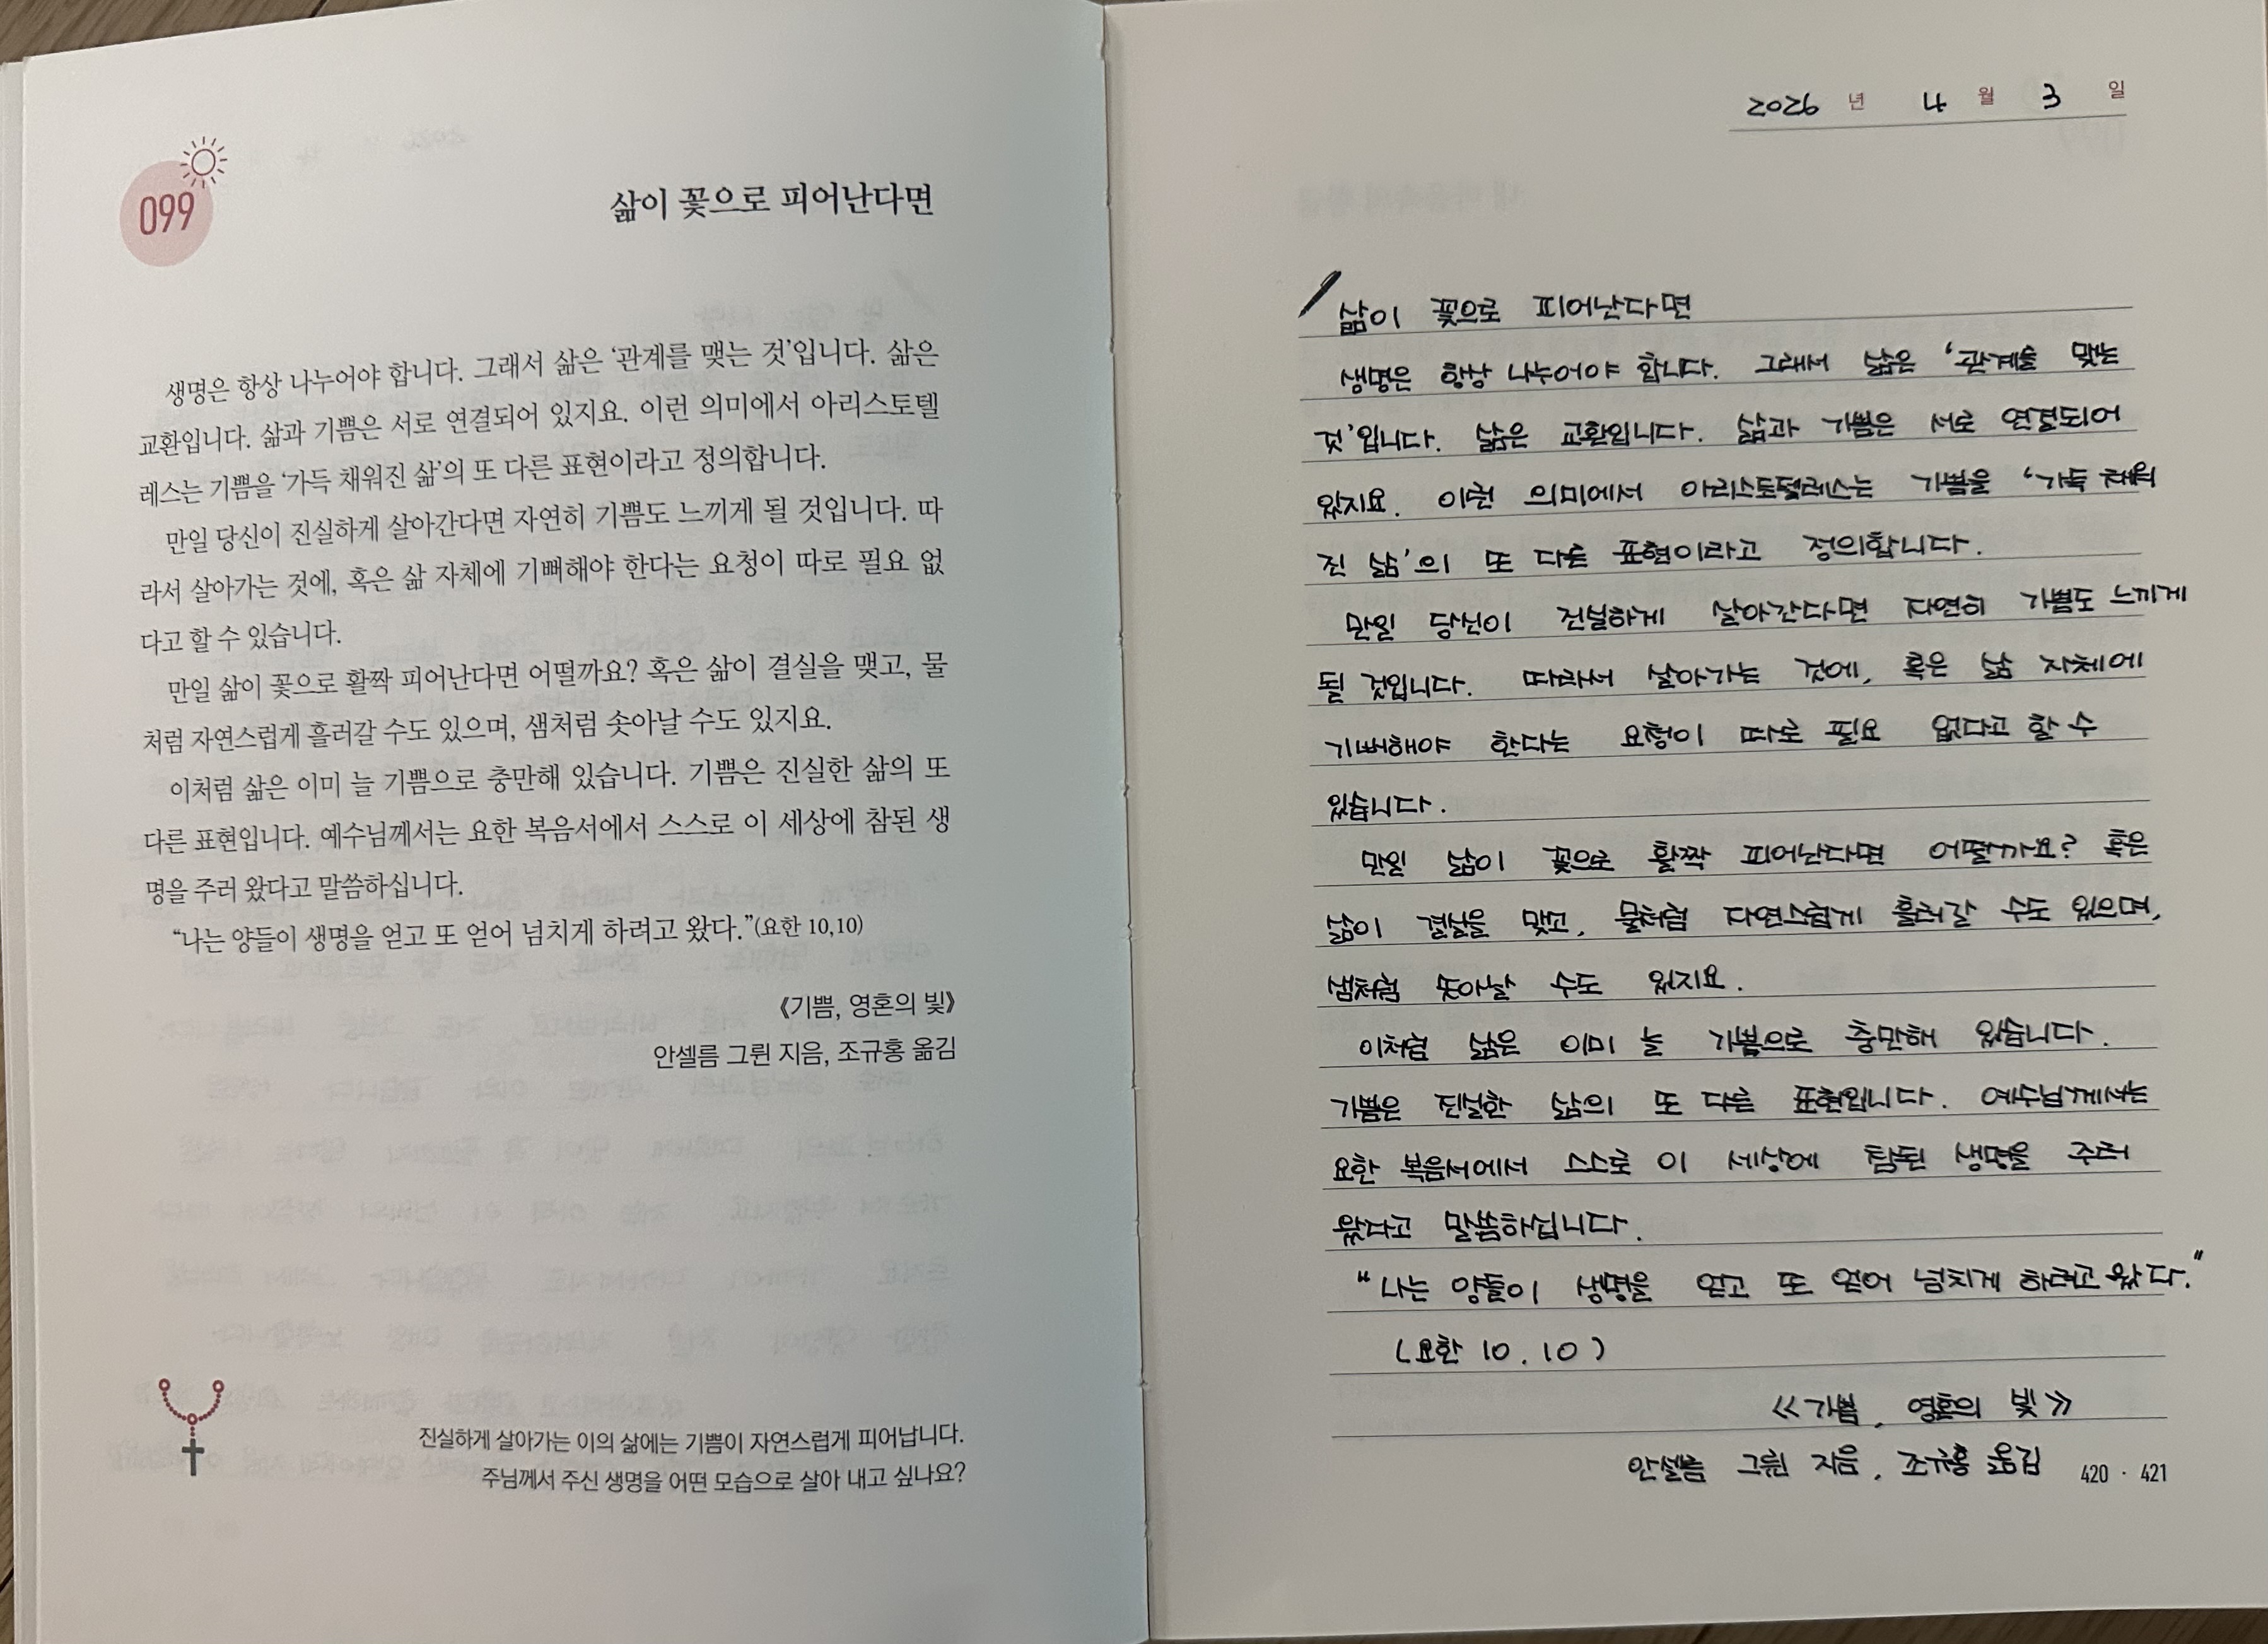 099
삶이 꽃으로 피어난다면
생명은 항상 나누어야 합니다. 그래서 삶은 ‘관계를 맺는 것’입니다. 삶은
교환입니다. 삶과 기쁨은 서로 연결되어 있지요. 이런 의미에서 아리스토텔
레스는 기쁨을 ‘가득 채워진 삶’의 또 다른 표현이라고 정의합니다.
만일 당신이 진실하게 살아간다면 자연히 기쁨도 느끼게 될 것입니다. 따
라서 살아가는 것에, 혹은 삶 자체에 기뻐해야 한다는 요청이 따로 필요 없
다고 할 수 있습니다.
만일 삶이 꽃으로 활짝 피어난다면 어떨까요? 혹은 삶이 결실을 맺고, 물
처럼 자연스럽게 흘러갈 수도 있으며, 샘처럼 솟아날 수도 있지요.
이처럼 삶은 이미 늘 기쁨으로 충만해 있습니다. 기쁨은 진실한 삶의 또
다른 표현입니다. 예수님께서는 요한 복음서에서 스스로 이 세상에 참된 생
명을 주러 왔다고 말씀하십니다.
“나는 양들이 생명을 얻고 또 얻어 넘치게 하려고 왔다.”(요한 10,10)
《기쁨, 영혼의 빛》
안셀름 그륀 지음, 조규홍 옮김
진실하게 살아가는 이의 삶에는 기쁨이 자연스럽게 피어납니다.
주님께서 주신 생명을 어떤 모습으로 살아 내고 싶나요?
2026 년 4 월 3 일
삶이 꽃으로 피어난다면
생명은 항상 나누어야 합니다. 그래서 삶은 ‘관계를 맺는
것’입니다. 삶은 교환입니다. 삶과 기쁨은 서로 연결되어
있지요. 이런 의미에서 아리스토텔레스는 기쁨을 ‘가득 채워
진 삶’의 또 다른 표현이라고 정의합니다.
만일 당신이 진실하게 살아간다면 자연히 기쁨도 느끼게
될 것입니다. 따라서 살아가는 것에, 혹은 삶 자체에
기뻐해야 한다는 요청이 따로 필요 없다고 할 수
있습니다.
만일 삶이 꽃으로 활짝 피어난다면 어떨까요? 혹은
삶이 결실을 맺고, 물처럼 자연스럽게 흘러갈 수도 있으며,
샘처럼 솟아날 수도 있지요.
이처럼 삶은 이미 늘 기쁨으로 충만해 있습니다.
기쁨은 진실한 삶의 또 다른 표현입니다. 예수님께서는
요한 복음서에서 스스로 이 세상에 참된 생명을 주러
왔다고 말씀하십니다.
“나는 양들이 생명을 얻고 또 얻어 넘치게 하려고 왔다.”
(요한 10.10)
≪기쁨, 영혼의 빛≫
안셀름 그륀 지음, 조규홍 옮김
420 · 421